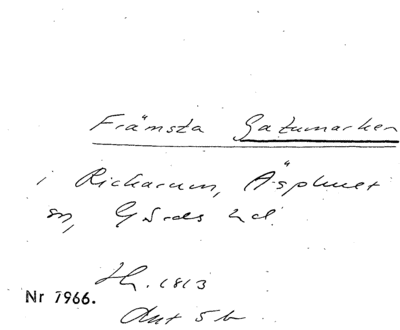 Främsta Gatumarken
i Rickarum, Äsphult
sn, Gärds hd.
Hh. 1813
Nr 7966.
Akt 5b